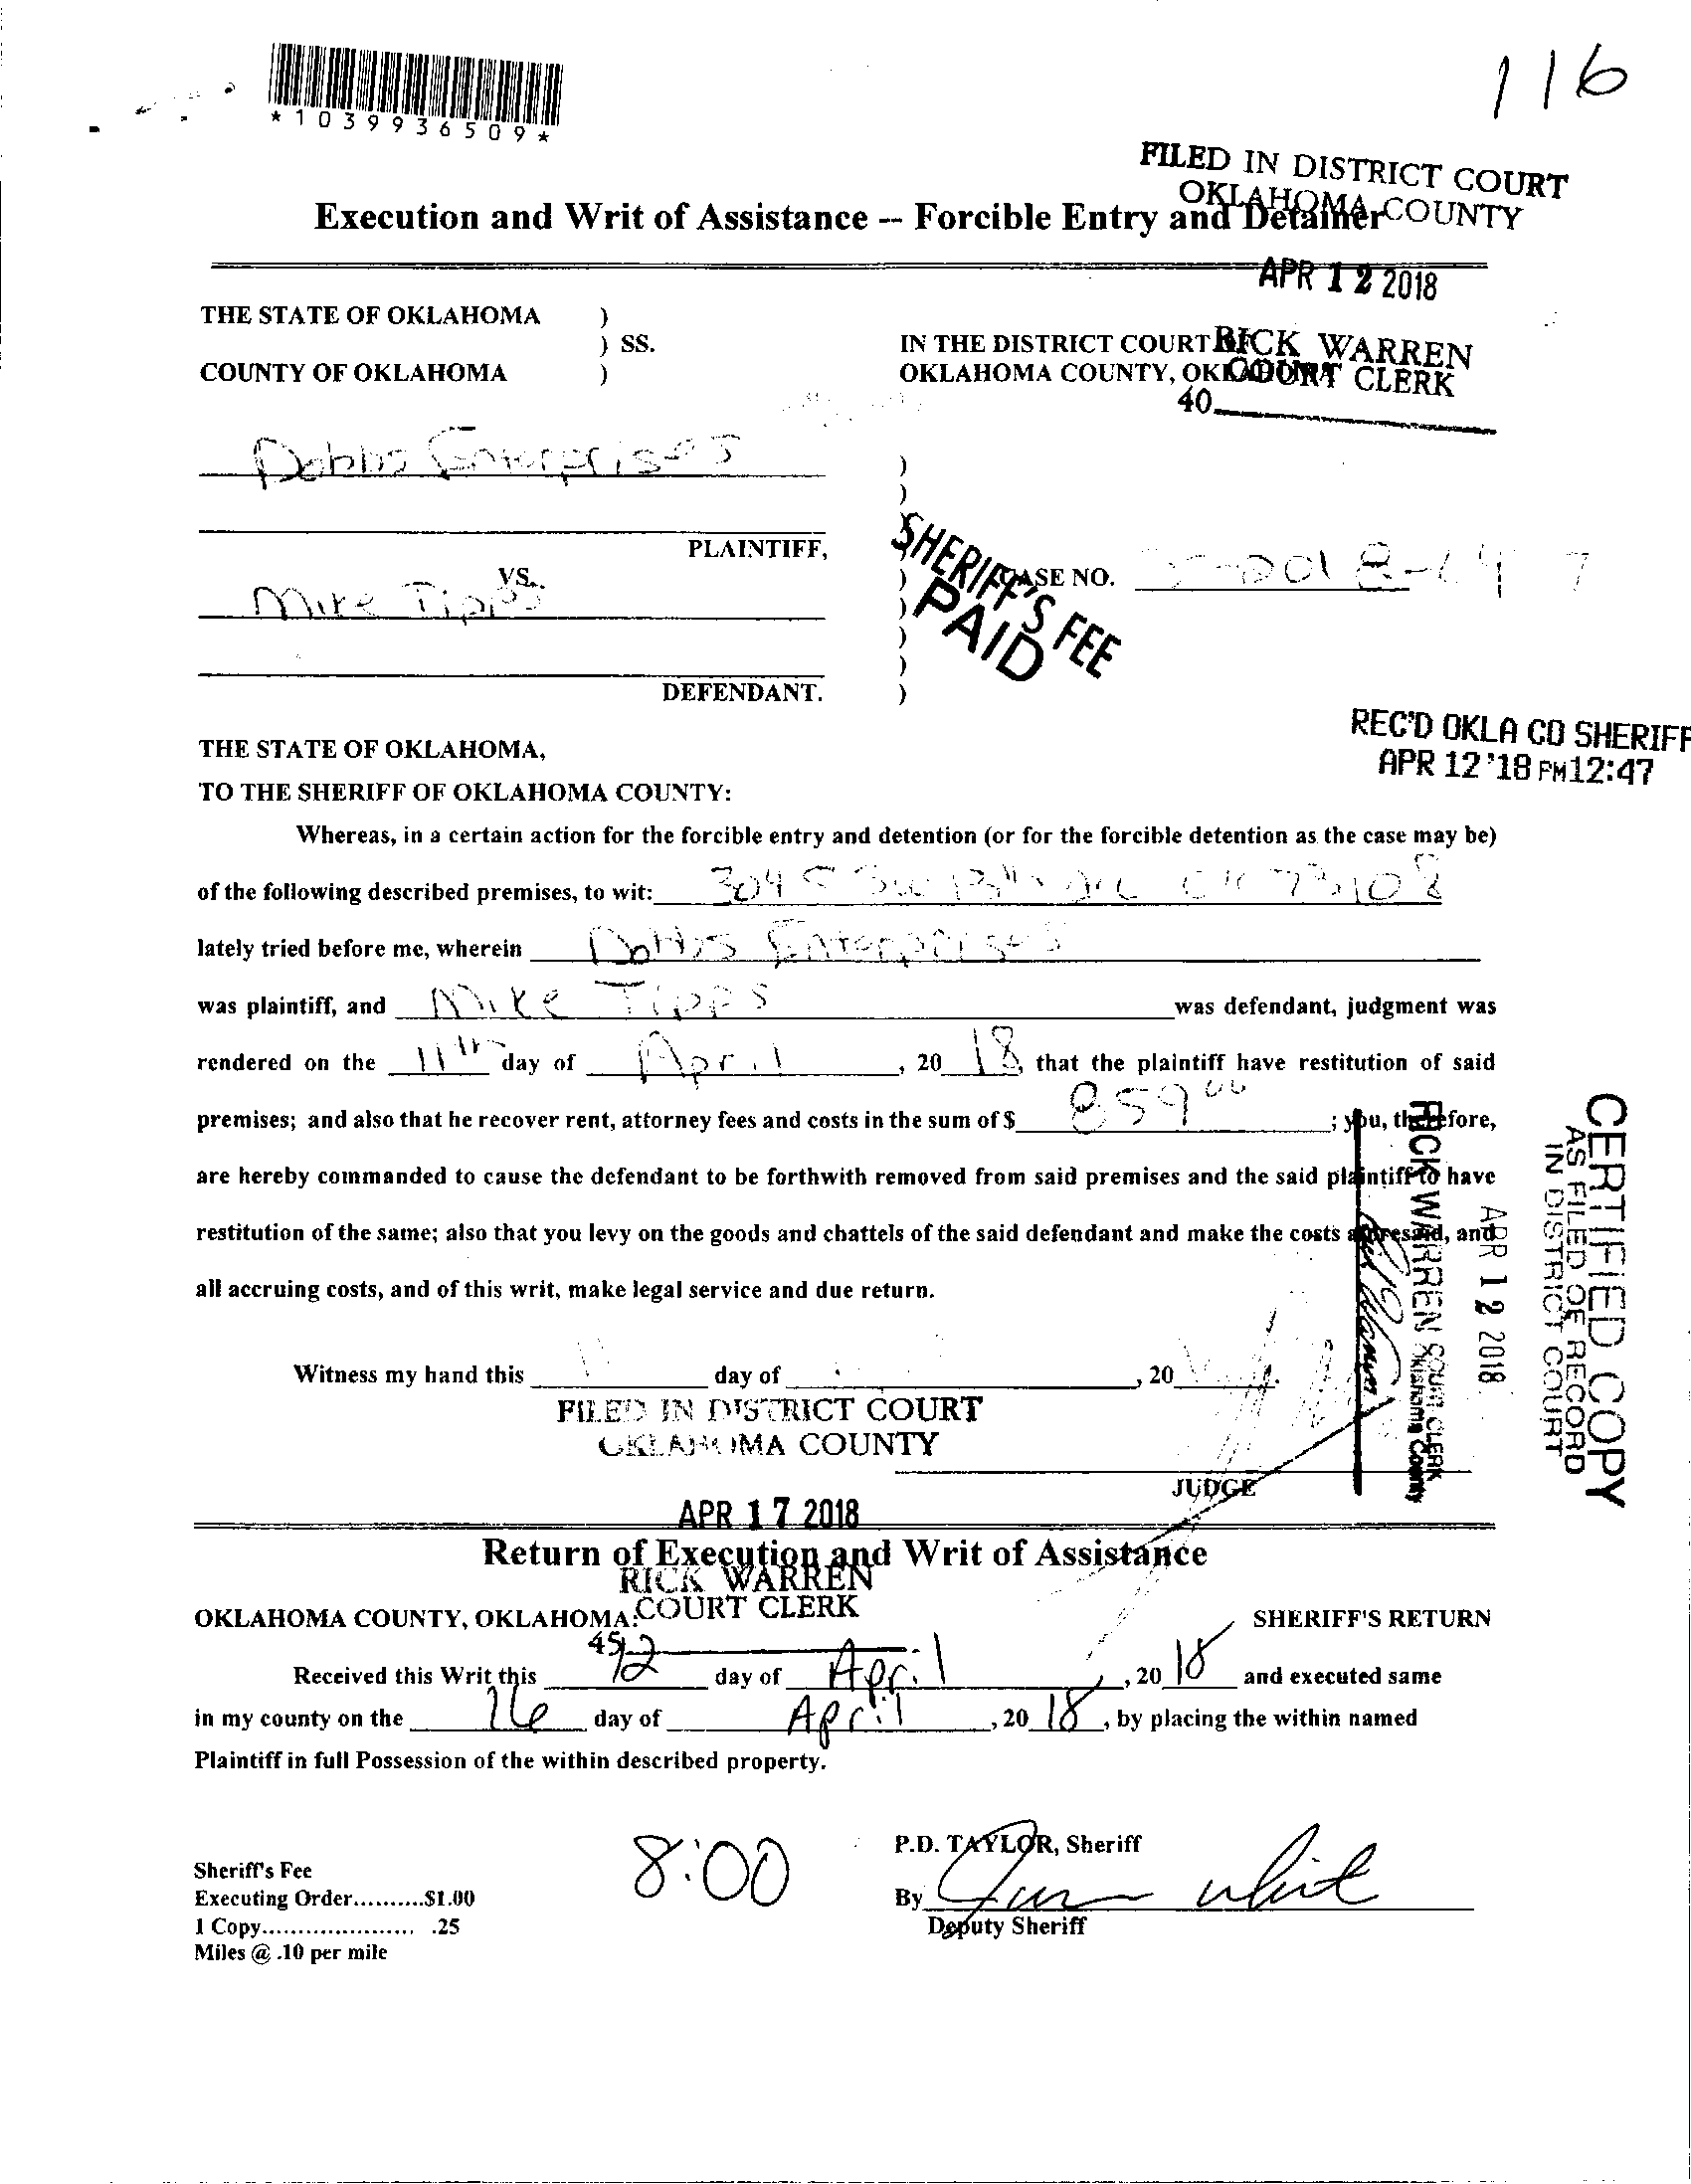 116
*1039936509*
FILED IN DISTRICT COURT
OKLAHOMA COUNTY
Execution and Writ of Assistance -- Forcible Entry and Detainer
APR 12 2018
THE STATE OF OKLAHOMA )
) SS.
COUNTY OF OKLAHOMA )
IN THE DISTRICT COURT
OKLAHOMA COUNTY, OKLAHOMA
RICK WARREN
COURT CLERK
40
Dobbs Enterprises
PLAINTIFF,
VS.
Mike Tipps
DEFENDANT.
CASE NO.
SHERIFF'S FEE
PAID
REC'D OKLA CO SHERIFF
APR 12 '18 PM12:47
THE STATE OF OKLAHOMA,
TO THE SHERIFF OF OKLAHOMA COUNTY:
Whereas, in a certain action for the forcible entry and detention (or for the forcible detention as the case may be)
of the following described premises, to wit: 3045 SW 13th 73108
lately tried before me, wherein Dobbs Enterprises
was plaintiff, and Mike Tipps was defendant, judgment was
rendered on the 11th day of April, 2018 that the plaintiff have restitution of said
premises; and also that he recover rent, attorney fees and costs in the sum of $ 859 00; you, therefore,
are hereby commanded to cause the defendant to be forthwith removed from said premises and the said plaintiff to have
restitution of the same; also that you levy on the goods and chattels of the said defendant and make the costs aforesaid, and
all accruing costs, and of this writ, make legal service and due return.
Witness my hand this day of , 20
JUDGE
CERTIFIED COPY
AS FILED OF RECORD
IN DISTRICT COURT
APR 12 2018
RICK WARREN COURT CLERK
Oklahoma County
FILED IN DISTRICT COURT
OKLAHOMA COUNTY
APR 17 2018
RICK WARREN
COURT CLERK
45
Return of Execution and Writ of Assistance
OKLAHOMA COUNTY, OKLAHOMA:
SHERIFF'S RETURN
Received this Writ this 12 day of April, 20 18 and executed same
in my county on the 16 day of April, 20 18, by placing the within named
Plaintiff in full Possession of the within described property.
8:00
P.D. TAYLOR, Sheriff
By
Deputy Sheriff
Sheriff's Fee
Executing Order..........$1.00
1 Copy...................... .25
Miles @ .10 per mile